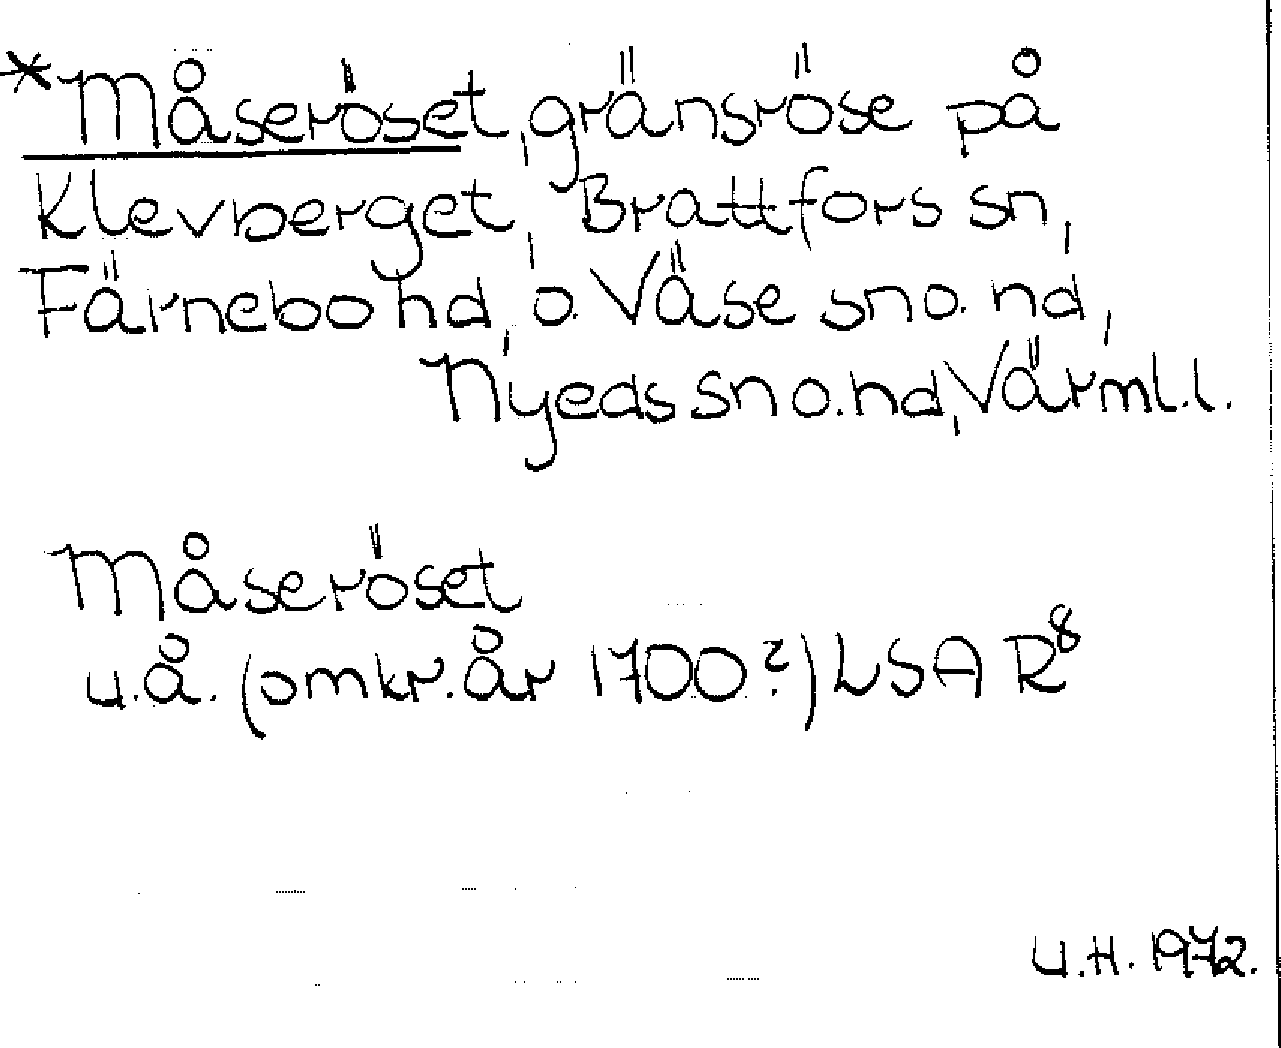 *Måseröset, gränsröse på
Klevberget, Brattfors sn,
Färnebo hd, o. Väse sn o. hd,
Nyeds sn o. hd, Värml. l.
Måseröset
u.å. (omkr. år 1700?) LSA R8
U.H. 1972.